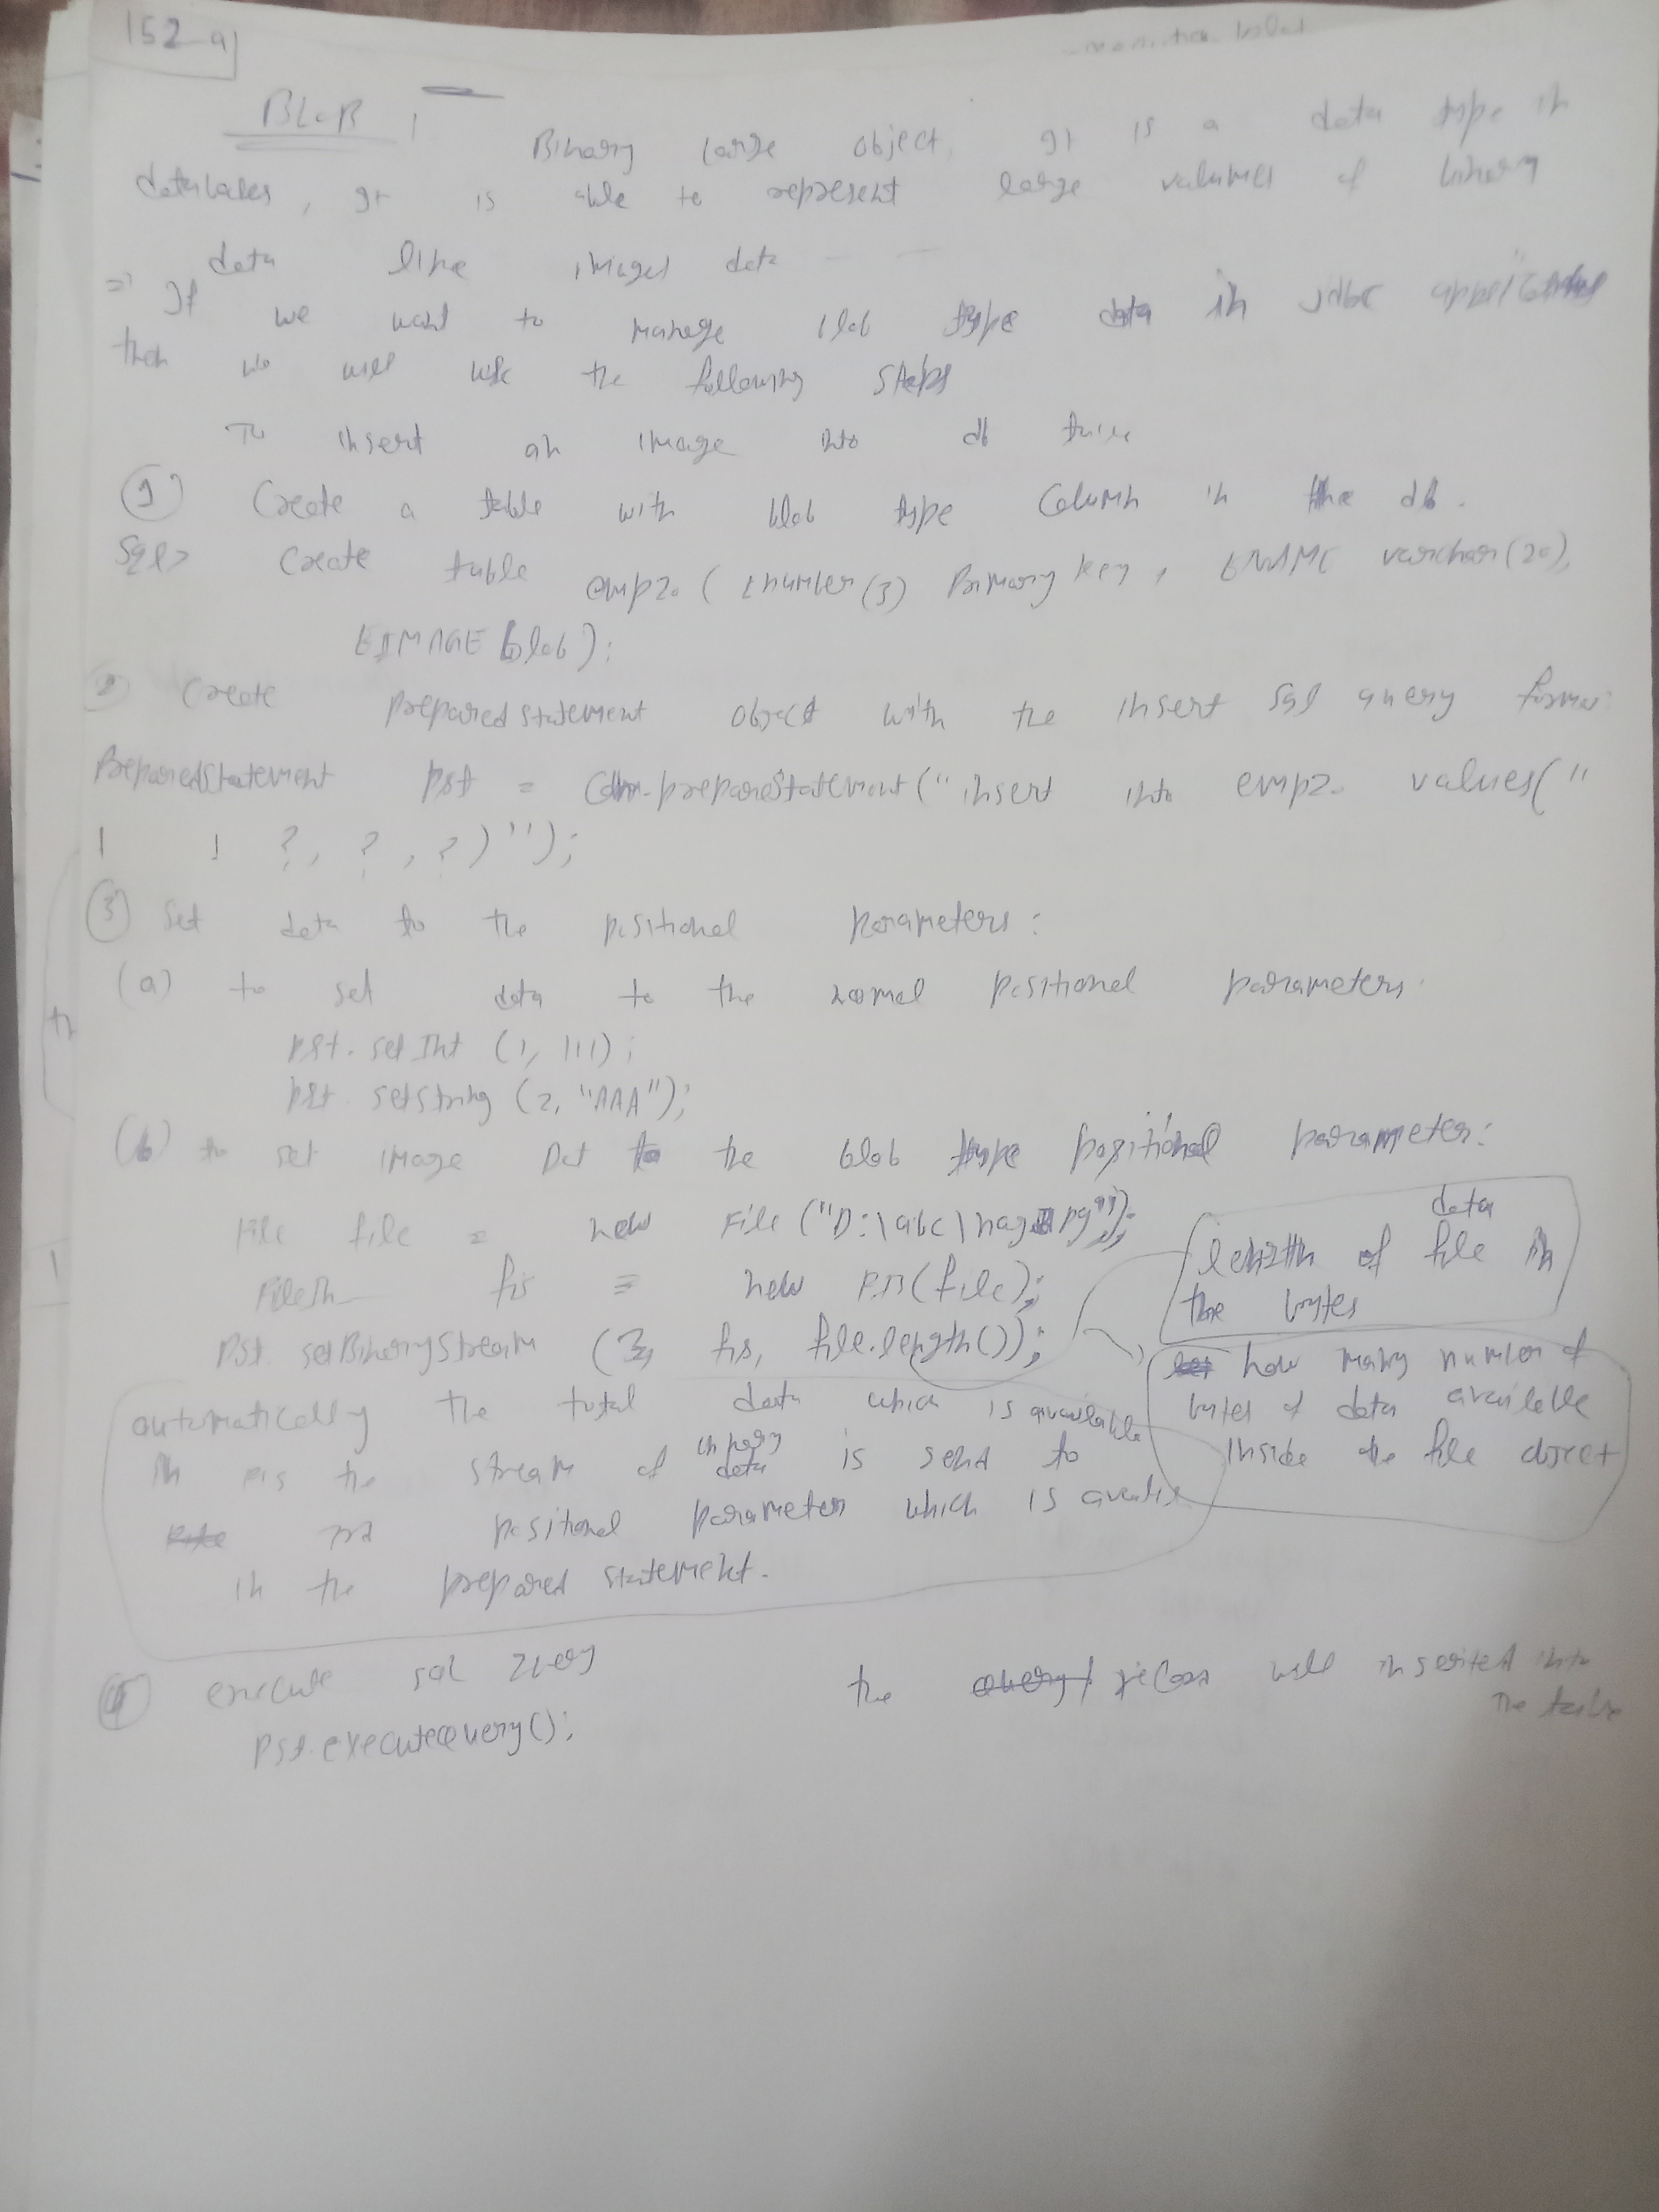 152-a
BLOB : Binary large object. It is a data type in
databases, It is able to represent large volumes of binary
data like images data - -
=> If we want to manage blob type data in JDBC applications
then we will use the following steps
To insert an image into db table
① Create a table with blob type Column in the db.
Sql> Create table emp20 ( Enumber(3) Primary key, ENAME varchar(20),
EIMAGE blob);
② Create Prepared statement object with the insert sql query format:
PreparedStatement pst = Con.prepareStatement("insert into emp20 values("
?, ?, ?)");
③ Set data to the positional parameters:
(a) to set data to the normal positional parameters:
pst.setInt (1, 111);
pst.setString (2, "AAA");
(b) to set image Dat to the blob type positional parameter:
File file = new File ("D:\abc\
FileIn fis = new FIS(file);
Pst.setBinaryStream (3, fis, file.length());
data
length of file in
the bytes
how many number of
bytes of data available
inside the file object
automatically the total data which is available
in FIS the stream of binary data is send to
3rd positional parameter which is availe
in the prepared statement.
④ execute sql query the query record will inserited into
the table
Pst.executeQuery();